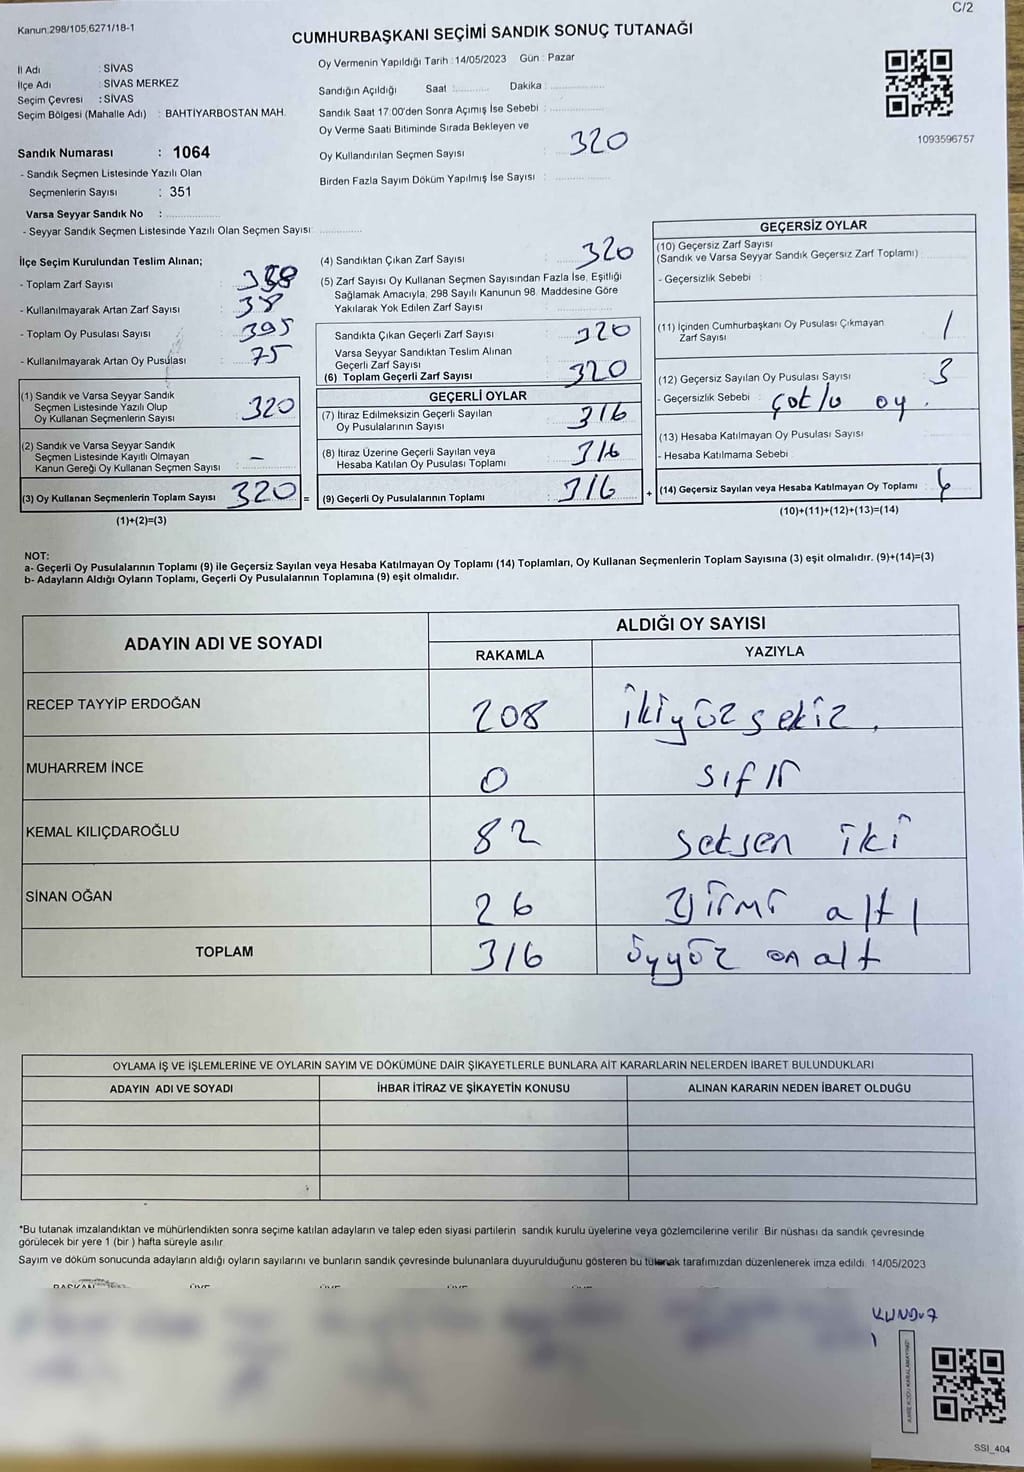 C/2
Kanun:298/105;6271/18-1
CUMHURBAŞKANI SEÇİMİ SANDIK SONUÇ TUTANAĞI
İl Adı : SİVAS
İlçe Adı : SİVAS MERKEZ
Seçim Çevresi : SİVAS
Seçim Bölgesi (Mahalle Adı) : BAHTİYARBOSTAN MAH.
Sandık Numarası : 1064
- Sandık Seçmen Listesinde Yazılı Olan
Seçmenlerin Sayısı : 351
Varsa Seyyar Sandık No :
- Seyyar Sandık Seçmen Listesinde Yazılı Olan Seçmen Sayısı:
Oy Vermenin Yapıldığı Tarih : 14/05/2023 Gün : Pazar
Sandığın Açıldığı Saat : Dakika :
Sandık Saat 17:00'den Sonra Açımış İse Sebebi :
Oy Verme Saati Bitiminde Sırada Bekleyen ve
Oy Kullandırılan Seçmen Sayısı : 320
Birden Fazla Sayım Döküm Yapılmış İse Sayısı :
1093596757
İlçe Seçim Kurulundan Teslim Alınan;
- Toplam Zarf Sayısı :
- Kullanılmayarak Artan Zarf Sayısı : 38
- Toplam Oy Pusulası Sayısı : 395
- Kullanılmayarak Artan Oy Pusulası : 75
(1) Sandık ve Varsa Seyyar Sandık
Seçmen Listesinde Yazılı Olup
Oy Kullanan Seçmenlerin Sayısı : 320
(2) Sandık ve Varsa Seyyar Sandık
Seçmen Listesinde Kayıtlı Olmayan
Kanun Gereği Oy Kullanan Seçmen Sayısı : –
(3) Oy Kullanan Seçmenlerin Toplam Sayısı : 320 =
(1)+(2)=(3)
(4) Sandıktan Çıkan Zarf Sayısı : 320
(5) Zarf Sayısı Oy Kullanan Seçmen Sayısından Fazla İse, Eşitliği
Sağlamak Amacıyla, 298 Sayılı Kanunun 98. Maddesine Göre
Yakılarak Yok Edilen Zarf Sayısı :
Sandıkta Çıkan Geçerli Zarf Sayısı : 320
Varsa Seyyar Sandıktan Teslim Alınan
Geçerli Zarf Sayısı :
(6) Toplam Geçerli Zarf Sayısı : 320
GEÇERLİ OYLAR
(7) İtiraz Edilmeksizin Geçerli Sayılan
Oy Pusulalarının Sayısı : 316
(8) İtiraz Üzerine Geçerli Sayılan veya
Hesaba Katılan Oy Pusulası Toplamı : 316
(9) Geçerli Oy Pusulalarının Toplamı : 316 +
GEÇERSİZ OYLAR
(10) Geçersiz Zarf Sayısı
(Sandık ve Varsa Seyyar Sandık Geçersiz Zarf Toplamı) :
- Geçersizlik Sebebi :
(11) İçinden Cumhurbaşkanı Oy Pusulası Çıkmayan
Zarf Sayısı : 1
(12) Geçersiz Sayılan Oy Pusulası Sayısı : 3
- Geçersizlik Sebebi : çoklu oy.
(13) Hesaba Katılmayan Oy Pusulası Sayısı :
- Hesaba Katılmama Sebebi
(14) Geçersiz Sayılan veya Hesaba Katılmayan Oy Toplamı :
(10)+(11)+(12)+(13)=(14)
NOT:
a- Geçerli Oy Pusulalarının Toplamı (9) ile Geçersiz Sayılan veya Hesaba Katılmayan Oy Toplamı (14) Toplamları, Oy Kullanan Seçmenlerin Toplam Sayısına (3) eşit olmalıdır. (9)+(14)=(3)
b- Adayların Aldığı Oyların Toplamı, Geçerli Oy Pusulalarının Toplamına (9) eşit olmalıdır.
ADAYIN ADI VE SOYADI ALDIĞI OY SAYISI
RAKAMLA YAZIYLA
RECEP TAYYİP ERDOĞAN 208 ikiyüz sekiz.
MUHARREM İNCE 0 sıfır
KEMAL KILIÇDAROĞLU 82 seksen iki
SİNAN OĞAN 26 yirmi altı
TOPLAM 316 üçyüz on altı
OYLAMA İŞ VE İŞLEMLERİNE VE OYLARIN SAYIM VE DÖKÜMÜNE DAİR ŞİKAYETLERLE BUNLARA AİT KARARLARIN NELERDEN İBARET BULUNDUKLARI
ADAYIN ADI VE SOYADI İHBAR İTİRAZ VE ŞİKAYETİN KONUSU ALINAN KARARIN NEDEN İBARET OLDUĞU
*Bu tutanak imzalandıktan ve mühürlendikten sonra seçime katılan adayların ve talep eden siyasi partilerin sandık kurulu üyelerine veya gözlemcilerine verilir. Bir nüshası da sandık çevresinde
görülecek bir yere 1 (bir ) hafta süreyle asılır.
Sayım ve döküm sonucunda adayların aldığı oyların sayılarını ve bunların sandık çevresinde bulunanlara duyurulduğunu gösteren bu tutanak tarafımızdan düzenlenerek imza edildi. 14/05/2023
KUNDUZ
SSI_404